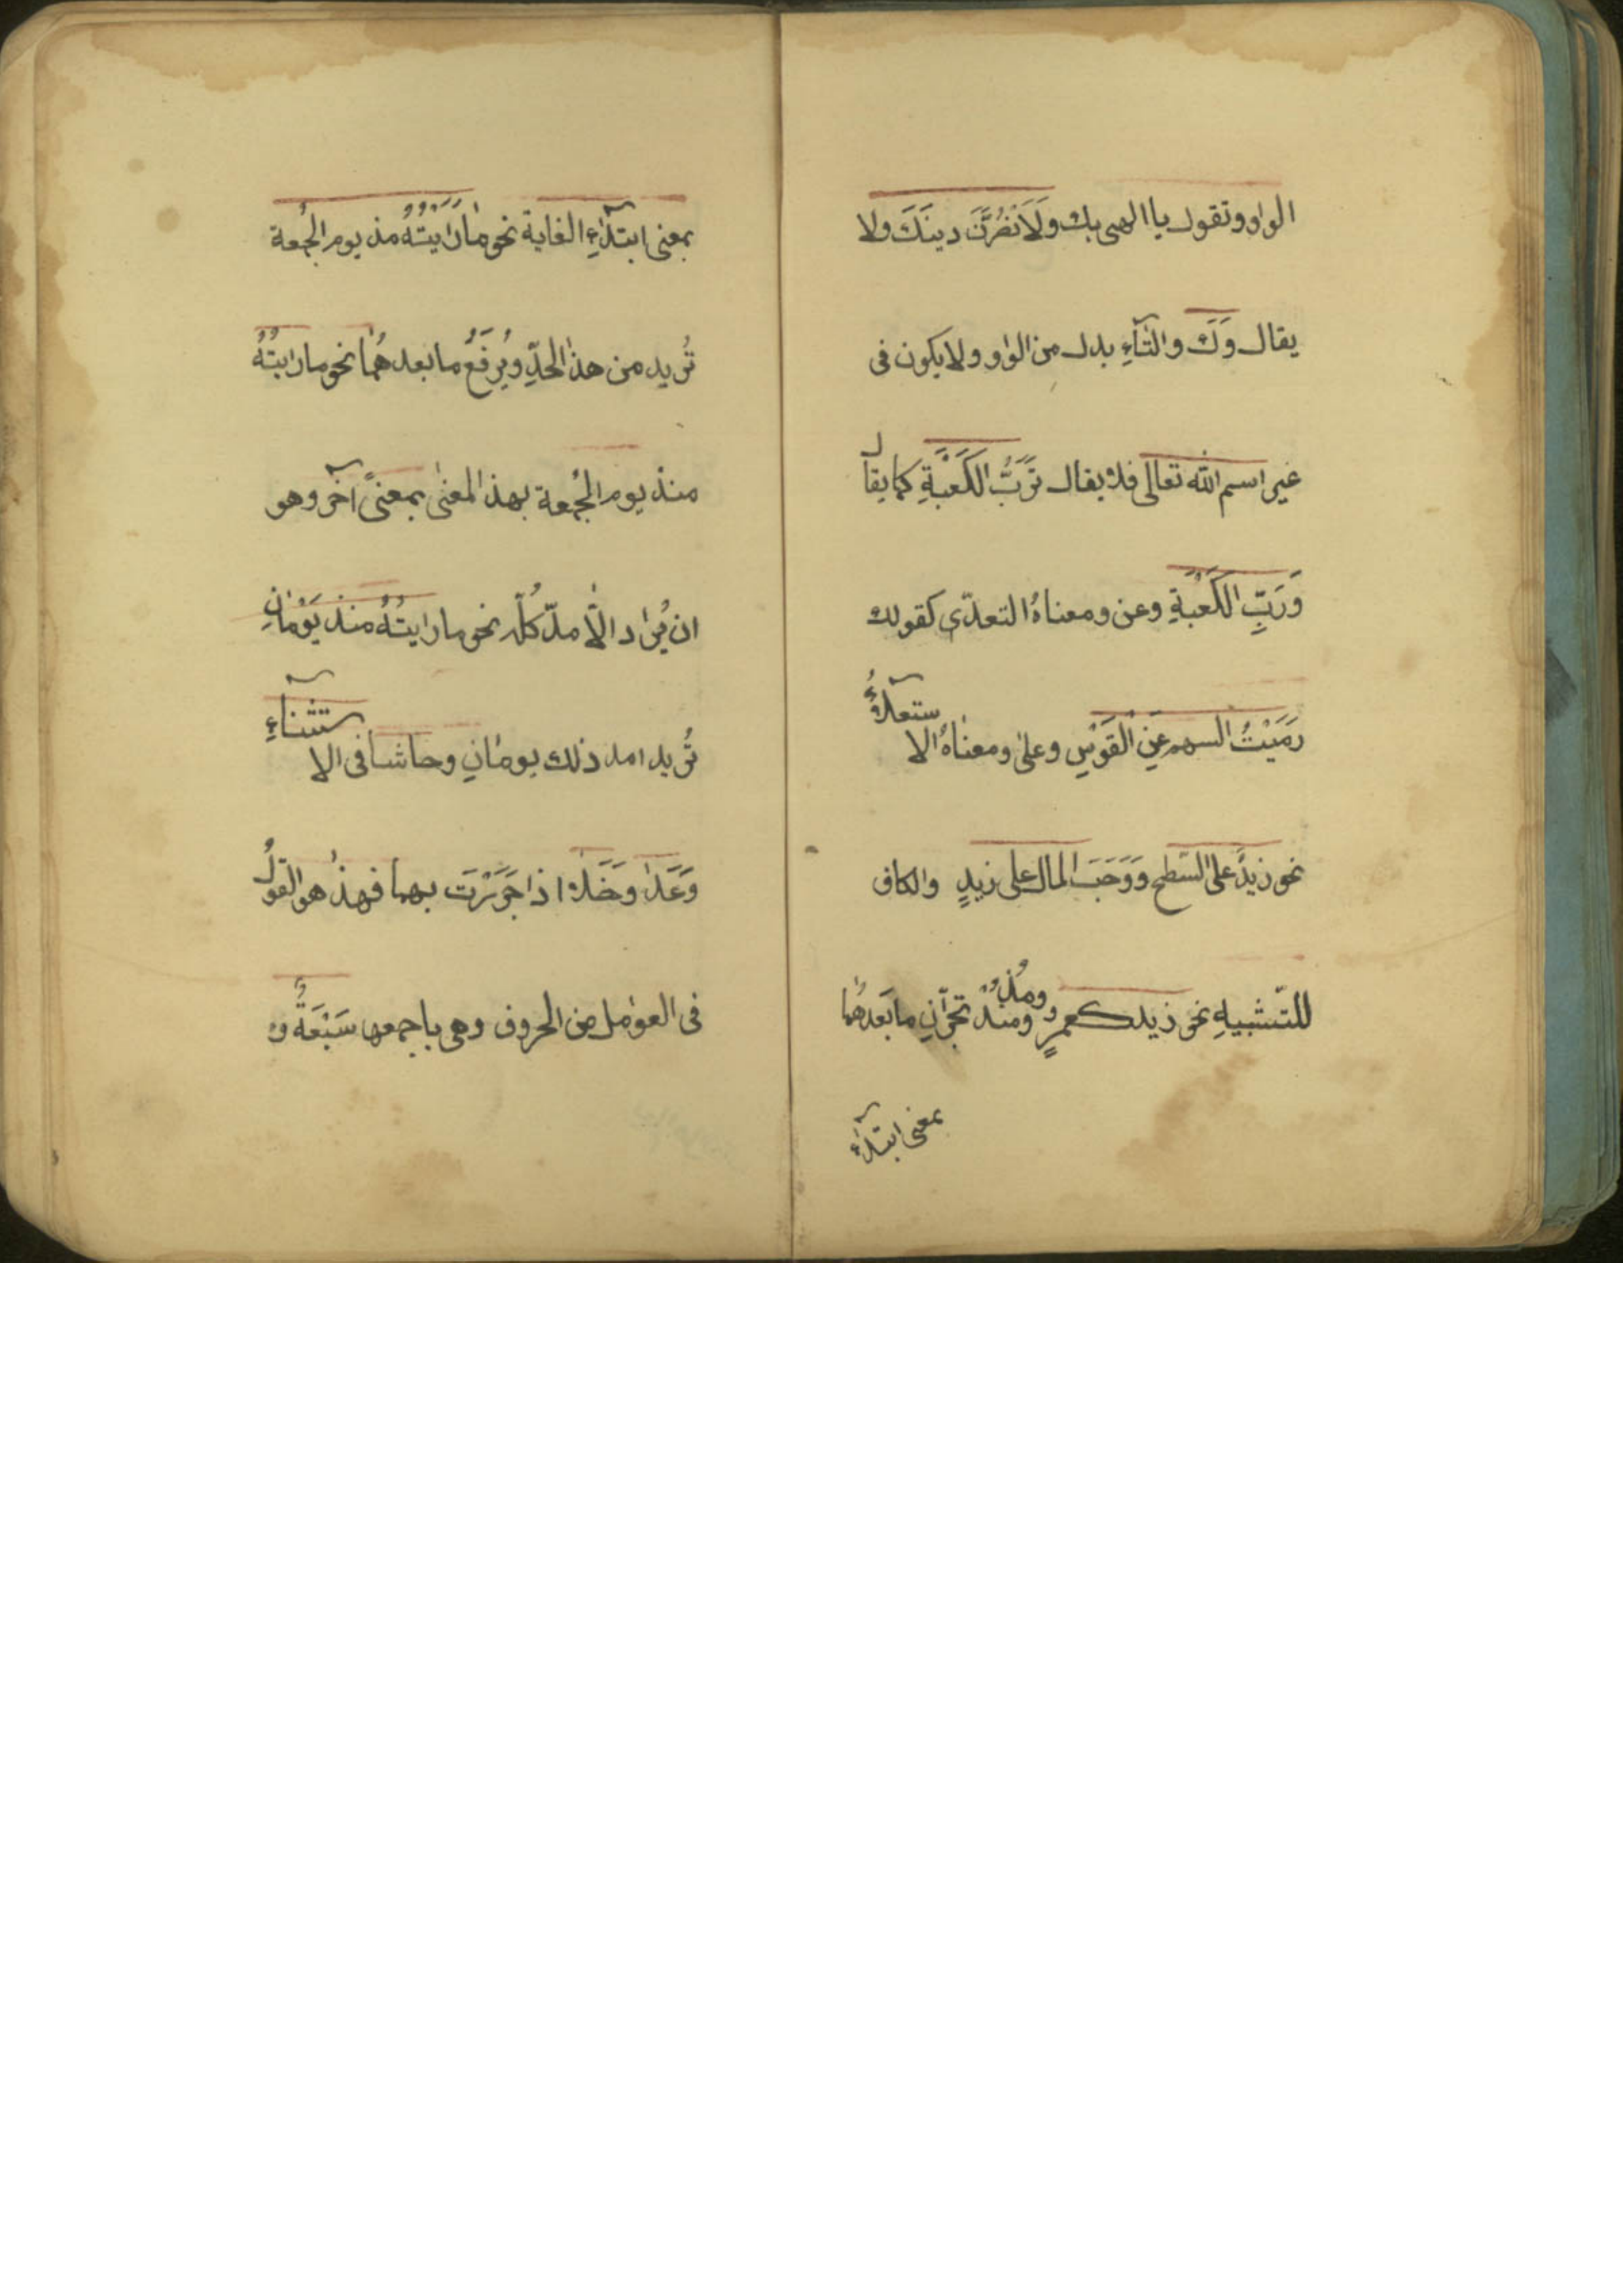 الواو وتقول يا الهى بك ولَاَنْصُرَنَّ دينَكَ ولا
يقال وَكَ والتّآءِ بدل من الواو ولا يكون فى
غير اسم الله تعالى فلا يقال تَرَبُّ الكَعْبَةِ كما يقال
وَرَبِّ الكَعْبَةِ وعن ومعناهُ التعدّى كقولك
رَمَيْتُ السهم عَنِ الْقَوْسِ وعلى ومعناهُ الاستعلآءُ
نحو زيدٌ على السّطح وَوَجَبَ المال على زيدٍ والكاف
للتّشبيهِ نحو زيد كعمرٍو ومُذْ ومنذُ تجرّانِ ما بَعدهُما
بمعنى ابتدآءِ
بمعنى ابتدآءِ الغاية نحو مارَاَيْتُهُ مذ يوم الجُمعة
تُريد من هذا الحدِّ ويُرفَعُ ما بعدهُما نحو ما رايتُهُ
منذ يوم الجُمعة بهذ المعنى بمعنىً آخر وهو
ان يُراد الْاَمدّ كُلّه نحو ما رايتُهُ منذ يَوْمانِ
تُريد امد ذلك يومانِ وحاشا فى الاستثناءِ
وَعَدا وخَلا اذا جَرَرْتَ بهما فهذ هو القولُ
فى العوامل من الحروف وهى باجمعها سَبْعَةٌ و